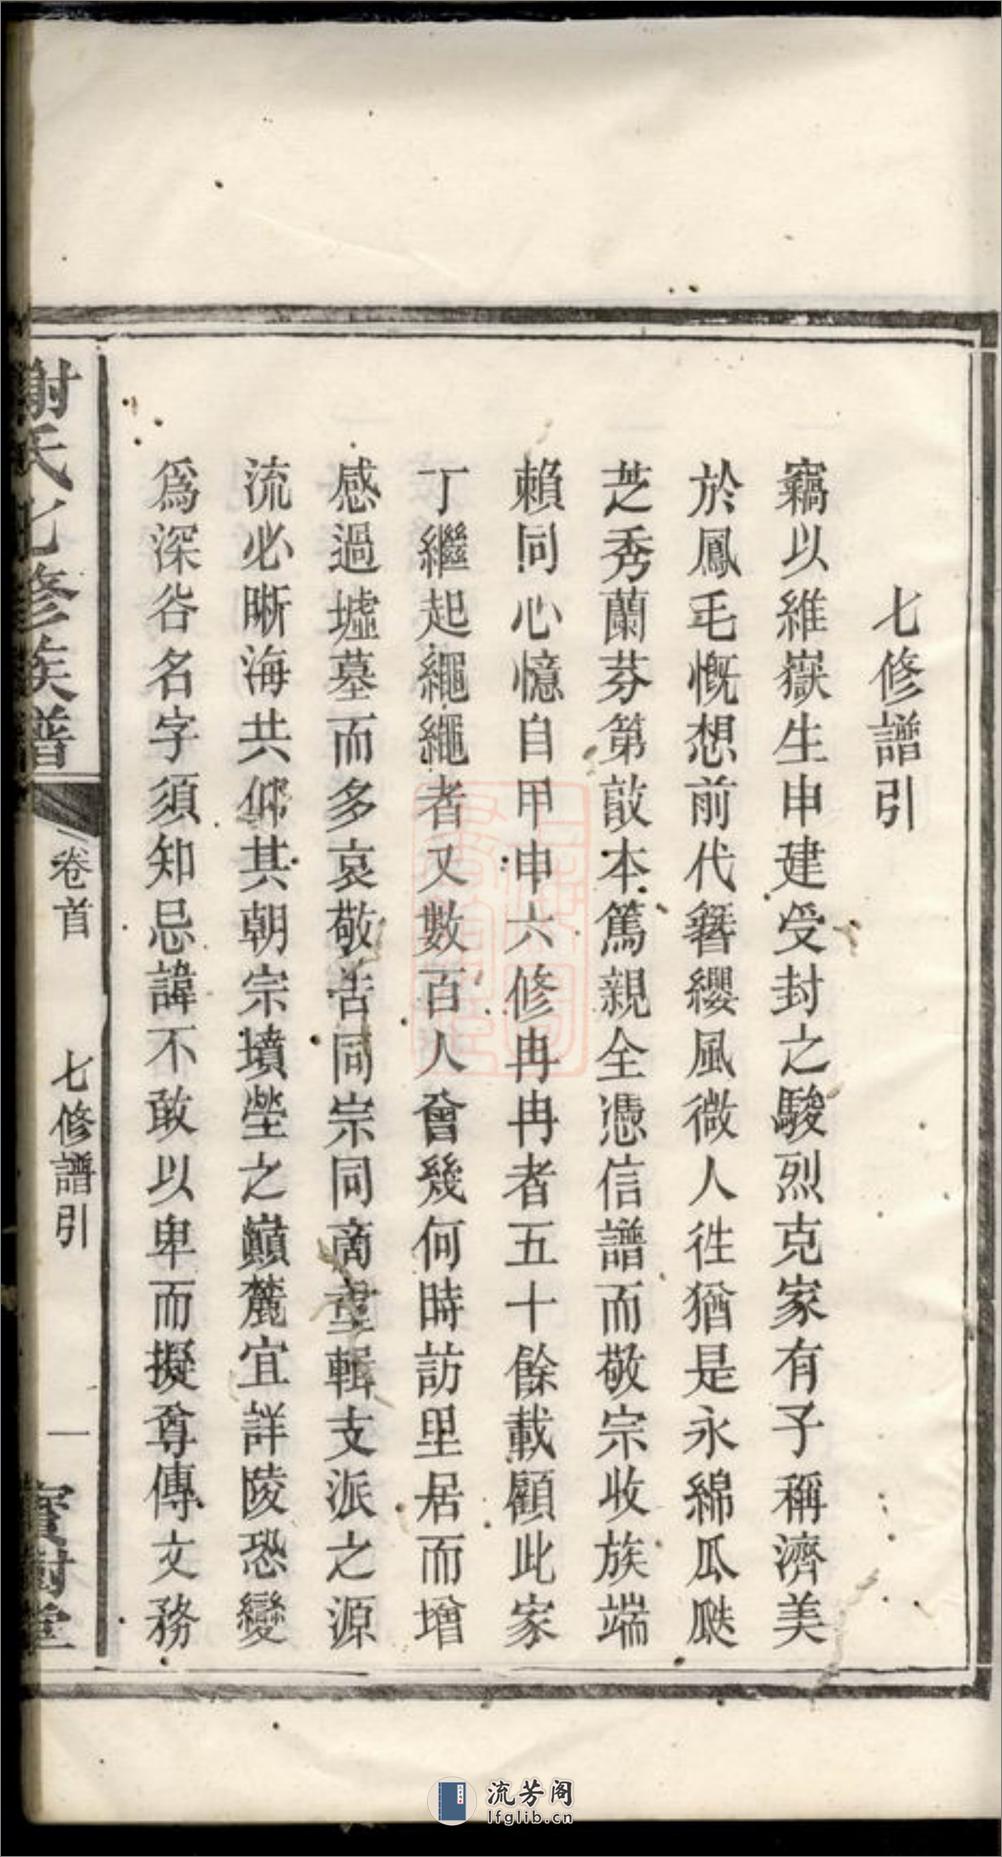 七修譜引
竊以維嶽生申建受封之駿烈克家有子稱濟美
於鳳毛慨想前代簪纓風微人徃猶是永綿瓜瓞
芝秀蘭芬第敨本篤親全憑信譜而敬宗收族端
賴同心憶自甲申六修冉冉者五十餘載顧此家
丁繼起繩繩者又數百人曾幾何時訪里居而增
感過墟墓而多哀敬告同宗同商重輯支派之源
流必晰海共仰其朝宗墳塋之巔麓宜詳陵恐變
爲深谷名字須知忌諱不敢以卑而擬尊傳文務
謝氏七修族譜
卷首
七修譜引
一
寶樹堂
流芳阁
lfglib.cn